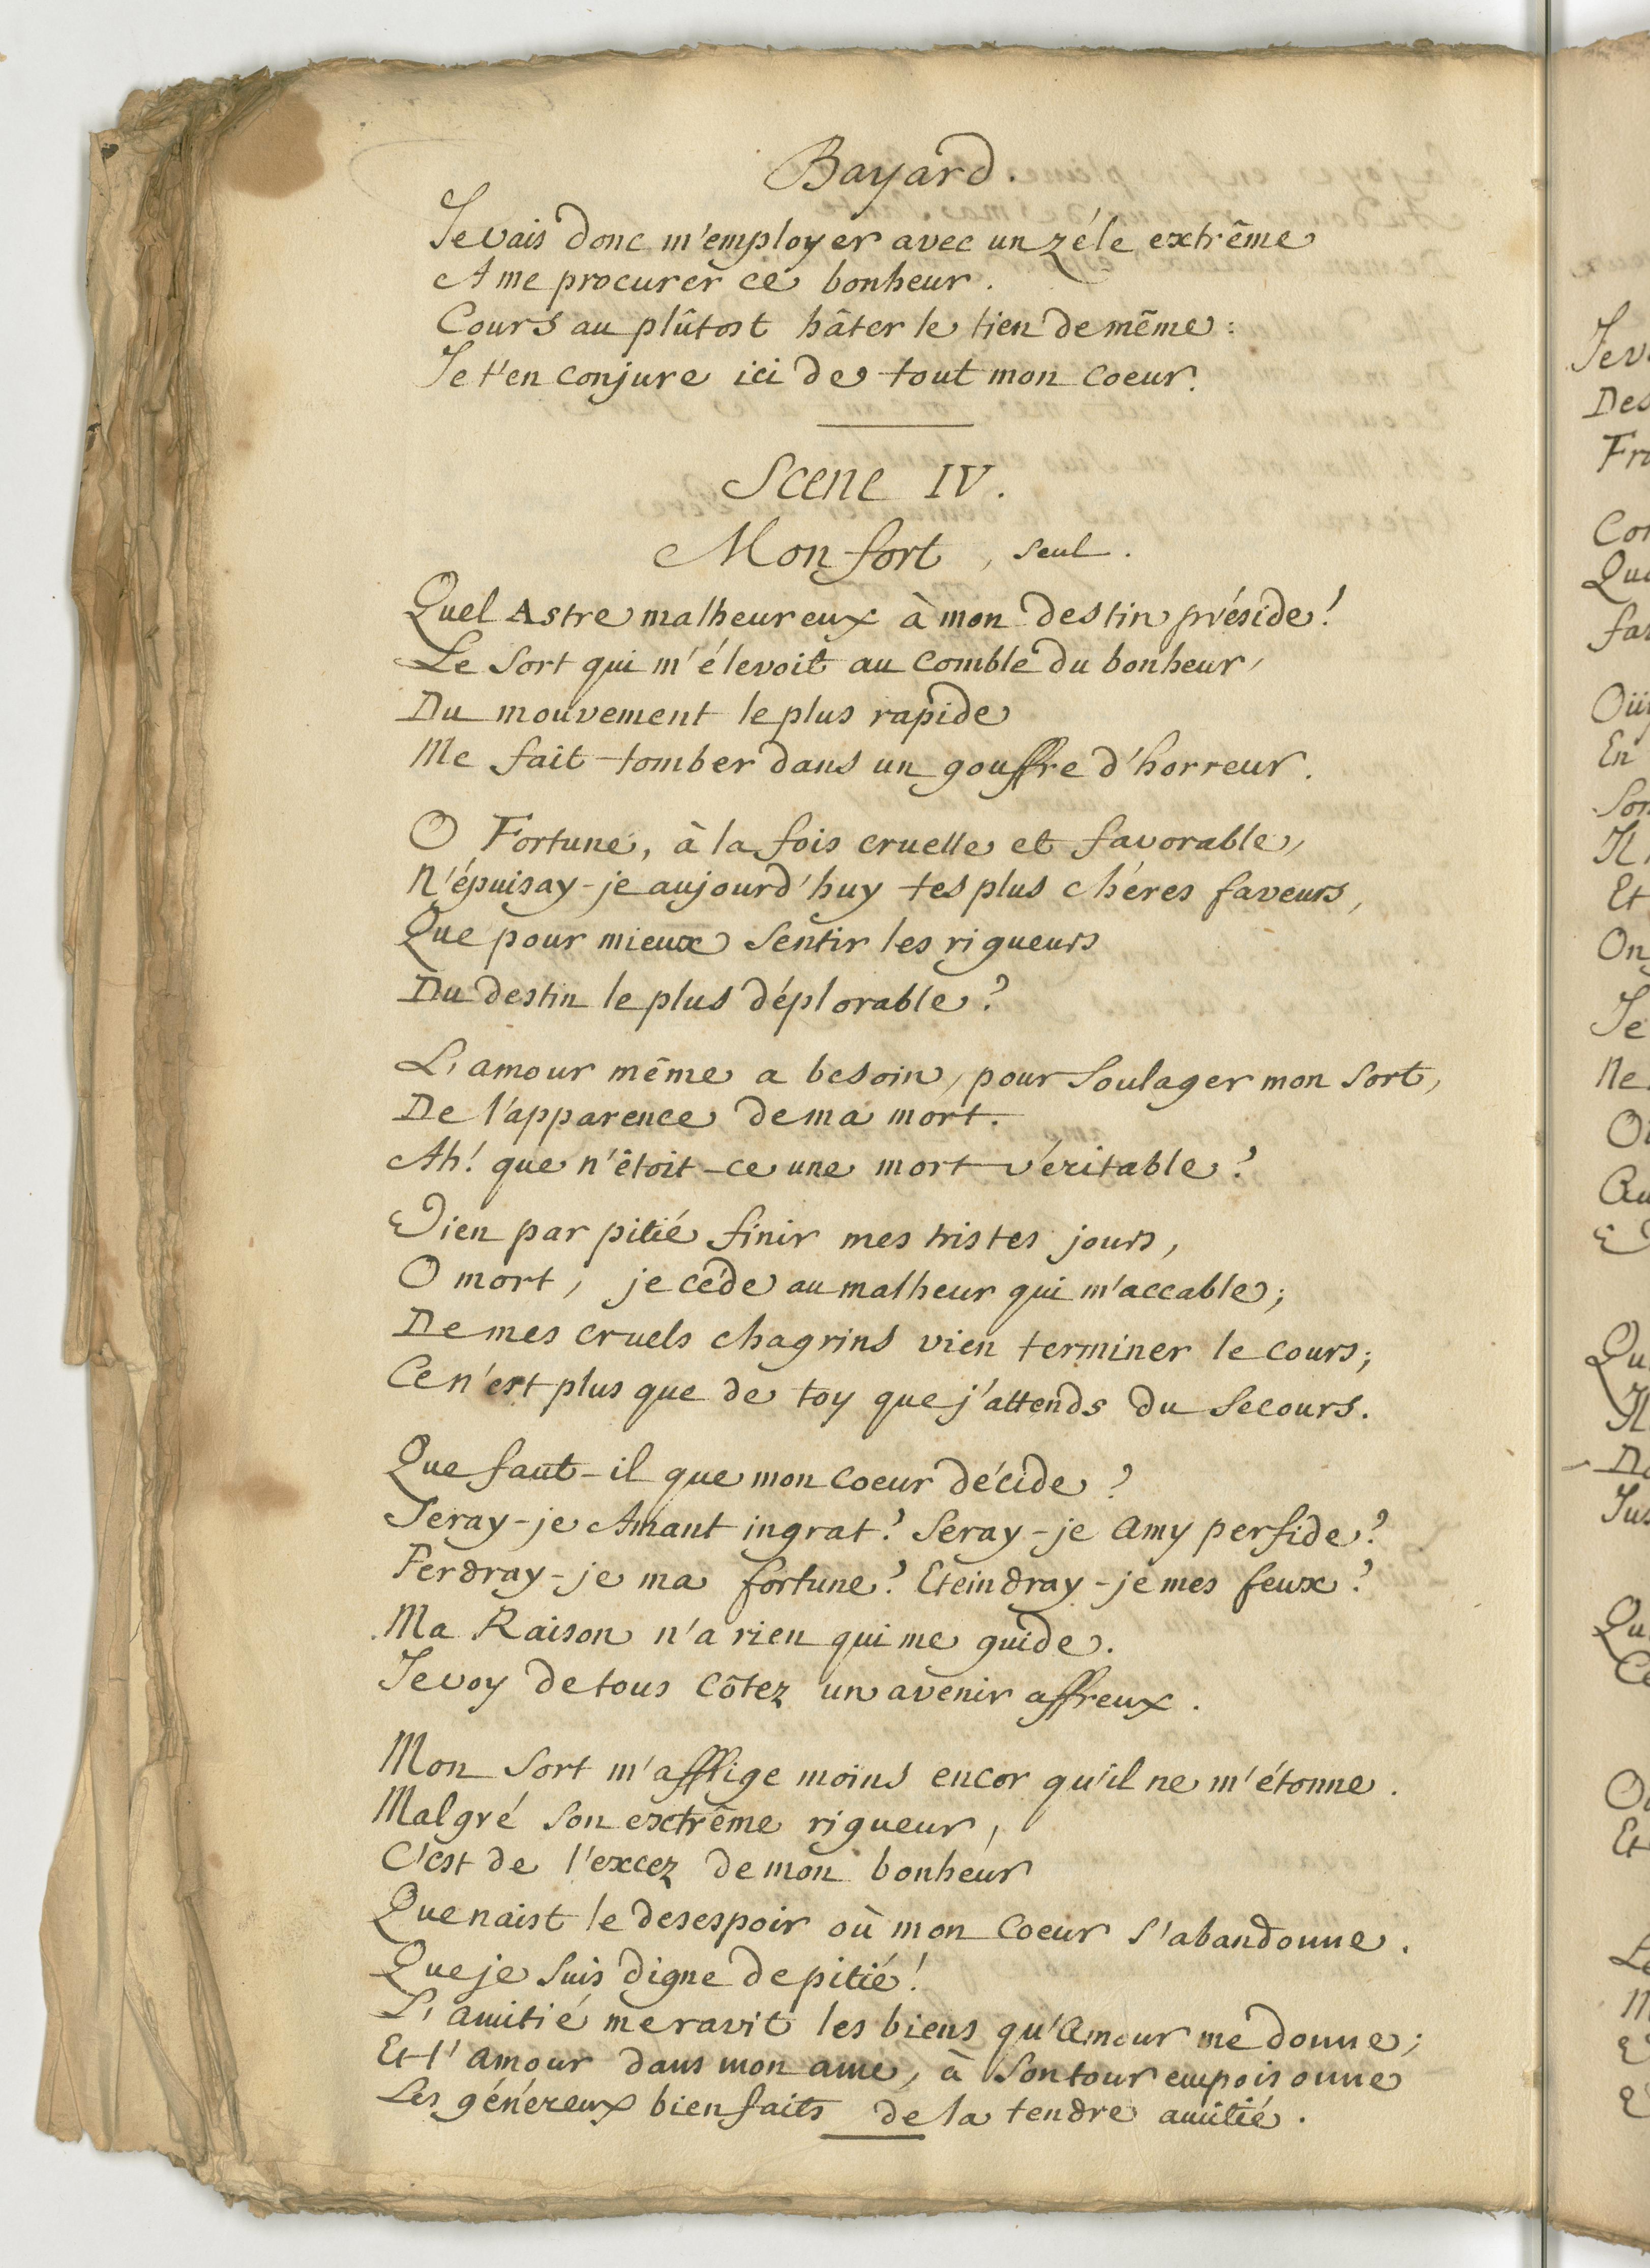 Bayard.
Je vais donc m'employer avec un zéle extrême
A me procurer ce bonheur.
Cours au plûtost hâter le tien de même:
Je t'en conjure ici de tout mon coeur.
Scene IV.
Monfort, seul.
Quel Astre malheureux à mon destin préside!
Le Sort qui m'élevoit au comble du bonheur,
Du mouvement le plus rapide
Me fait tomber dans un gouffre d'horreur.
O Fortune, à la fois cruelle et favorable,
N'épuisay-je aujourd'huy tes plus chéres faveurs,
Que pour mieux sentir les rigueurs
Du destin le plus déplorable?
L'amour même a besoin, pour soulager mon sort,
De l'apparence de ma mort.
Ah! que n'êtoit-ce une mort véritable?
Vien par pitié finir mes tristes jours,
O mort, je céde au malheur qui m'accable;
De mes cruels chagrins vien terminer le cours;
Ce n'est plus que de toy que j'attends du secours.
Que faut-il que mon coeur décide?
Seray-je Amant ingrat? Seray-je Amy perfide?
Perdray-je ma fortune? Eteindray-je mes feux?
Ma Raison n'a rien qui me guide.
Je voy de tous côtez un avenir affreux.
Mon Sort m'afflige moins encor qu'il ne m'étonne.
Malgré son extrême rigueur,
C'est de l'excez de mon bonheur
Que naist le desespoir où mon coeur s'abandonne.
Que je suis digne de pitié!
L'amitié me ravit les biens qu'Amour me donne;
Et l'amour dans mon ame, à son tour empoisonne
Les généreux bienfaits de la tendre amitié.
Je v
Des
Fr
Co
Qu
En
Il
Et
On
Je
Ne
Qu
Il
Qu
Ce
Et